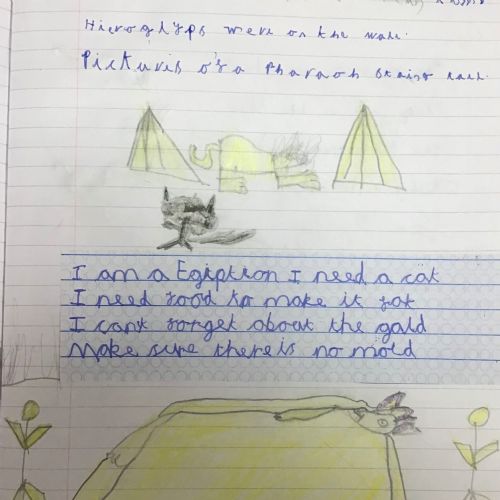 Hieroglyps were on the wall.
Picturis of a Pharaoh
I am a Egiption I need a cat
I need food to make it fat
I cant forget about the gold
Make sure there is no mold